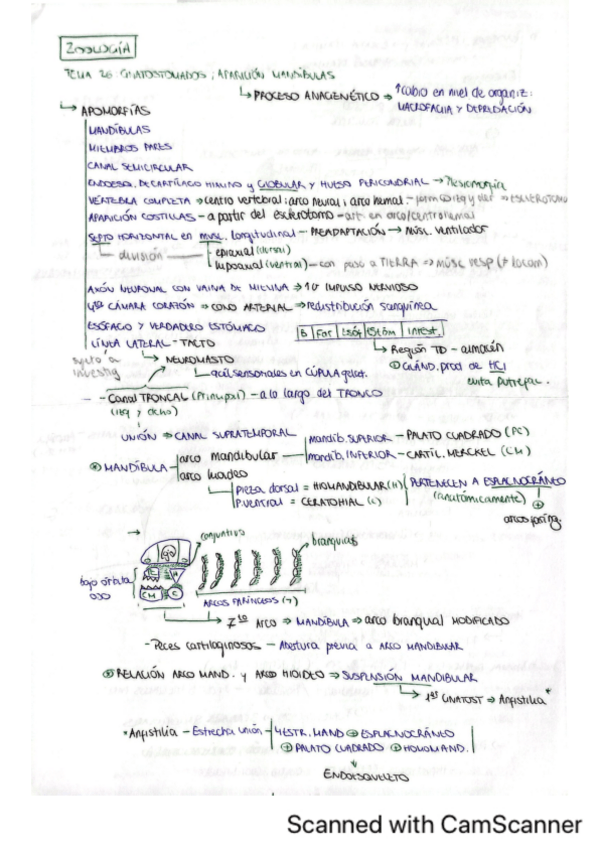 ZOOLOGÍA
TEMA 26: GNATOSTOMADOS; APARICIÓN MANDÍBULAS
↳ PROCESO ANAGENÉTICO → ↑cabio en nivel de organiz:
MACROFAGIA Y DEPREDACIÓN
↳ APOMORFÍAS
MANDÍBULAS
MIEMBROS PARES
CANAL SEMICIRCULAR
ENDOESQ. DE CARTÍLAGO HIALINO y GLOBULAR y HUESO PERICONDRIAL → Plesiomorfia
VÉRTEBRA COMPLETA → centro vertebral; arco neural; arco hemal - → ESCLEROTOMO
APARICIÓN COSTILLAS - a partir del esclerotomo - art en arco/centro hemal
SEPTO HORIZONTAL en MUSC. Longitudinal - PREADAPTACIÓN → MÚSC. ventilador
división
epiaxial (dorsal)
hipoaxial (ventral) - con paso a TIERRA → MÚSC resp (+ locom)
AXÓN NEURONAL CON VAINA DE MIELINA → IMPULSO NERVIOSO
CÁMARA CORAZÓN → CONO ARTERIAL → redistribución sanguínea
ESÓFAGO Y VERDADERO ESTÓMAGO B | Far | Esóf | Estóm | intest.
LÍNEA LATERAL - TACTO ↳ Región TD - almacén
↳ NEUROMASTO ⊕ Gland. prod de HCl
evita Putrefac.
↳ cél sensoriales en CÚPULA gelat.
- Canal TRONCAL (Principal) - a lo largo del TRONCO
(izq y dcho)
UNIÓN → CANAL SUPRATEMPORAL
⊛ MANDÍBULA
arco mandibular
mandíb. SUPERIOR - PALATO CUADRADO (PC)
mandíb. INFERIOR - CARTÍL. MERCKEL (CM)
arco hioideo
Pieza dorsal = HIOMANDIBULAR (H)
P. ventral = CERATOHIAL (C)
PERTENECEN A ESPLACNOCRÁNEO
(anatómicamente) ⊕
arcos faring.
conjuntivo
branquias
bajo órbita
OJO
CM
C
ARCOS FARÍNGEOS (7)
↳ ARCO → MANDÍBULA → arco branquial MODIFICADO
- Peces cartilaginosos - Abertura previa a ARCO MANDIBULAR
⊛ RELACIÓN ARCO MAND. y ARCO HIOIDEO → SUSPENSIÓN MANDIBULAR
↳ GNATOST → Anfistilia*
*Anfistilia - Estrecha unión - 4 ESTR. MAND ⊕ ESPLACNOCRÁNEO
⊕ PALATO CUADRADO ⊕ HIOMAND.
ENDOESQUELETO
Scanned with CamScanner